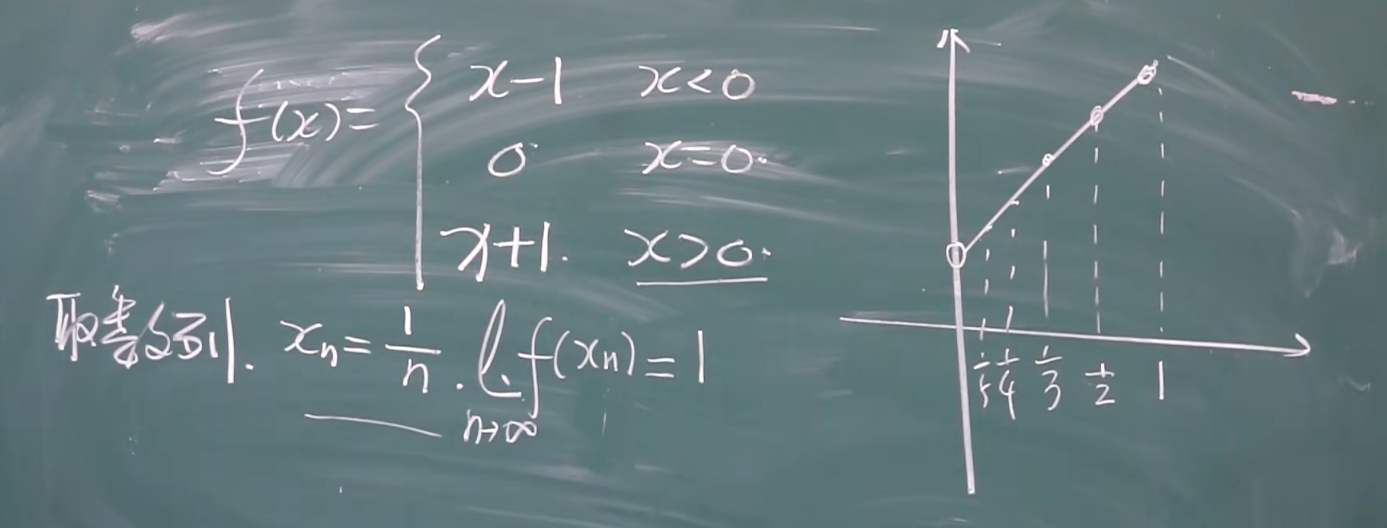 f(x)= { x-1 x<0
0 x=0.
x+1. x>0.
取数列. xₙ= 1/n . lim n→∞ f(xₙ)=1
1/5 1/4 1/3 1/2 1